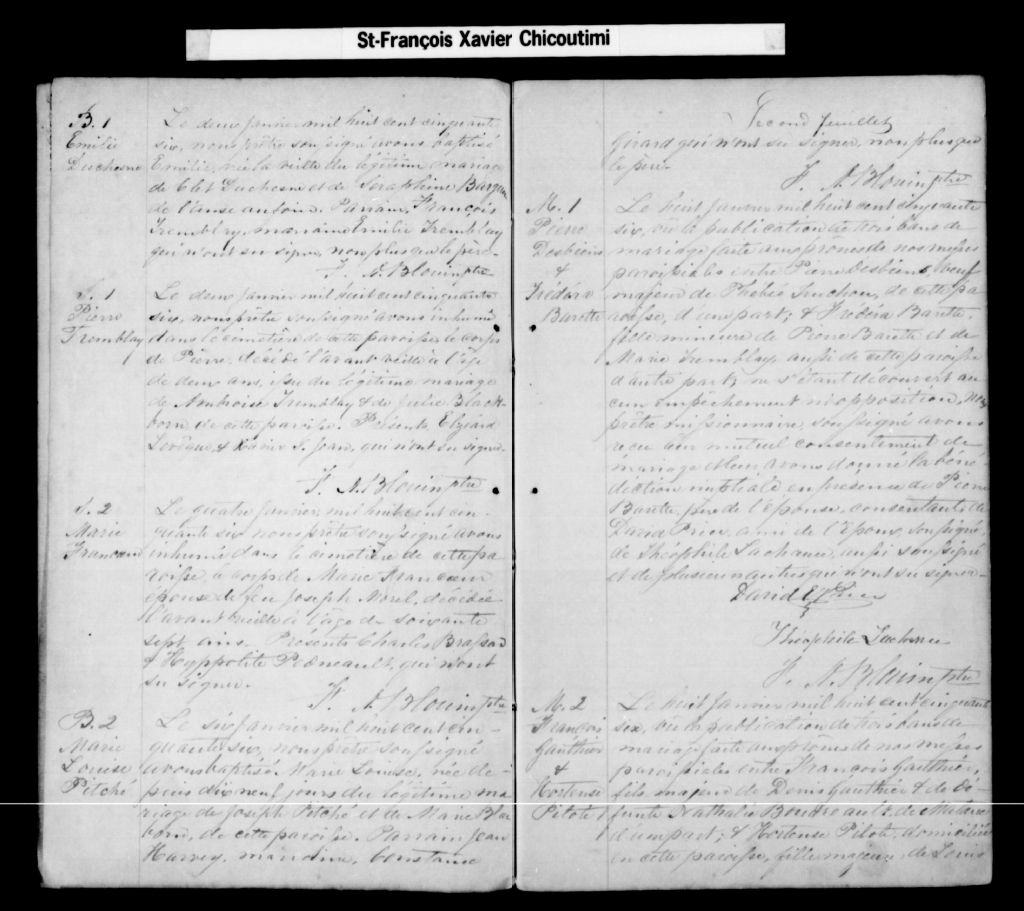 St-François Xavier Chicoutimi
B. 1
Emilie
Duchesne
Le deux janvier mil huit cent cinquante
six, nous prêtre soussigné avons baptisé
Emilie, née la veille du légitime mariage
de Clet Duchesne et de Seraphine
de l'anse au foin. Parrain, François
Tremblay, marraine Emilie Tremblay
qui n'ont su signer, non plus que le père.
F. A. Blouin ptre
S. 1
Pierre
Tremblay
Le deux janvier mil huit cent cinquante
six, nous prêtre soussigné avons inhumé
dans le cimetière de cette paroisse, le corps
de Pierre, décédé l'avant veille à l'âge
de deux ans, issu du légitime mariage
de Ambroise Tremblay & de Julie Black-
born de cette paroisse. Présents Elzéard
Levêque, & Xavier S. Jean, qui n'ont su signer.
F. A. Blouin ptre
S. 2
Marie
Francoeur
Le quatre janvier, mil huit cent cin-
quante six nous prêtre soussigné avons
inhumé dans le cimetière de cette pa
roisse, le corps de Marie Francoeur
épouse de feu Joseph Morel, décédée
l'avant veille à l'âge de soixante
sept ans. Présents Charles Brassard
& Hyppolite, qui n'ont
su signer.
F. A. Blouin ptre
B. 2
Marie
Louise
Pitché
Le six janvier mil huit cent cin-
quante six, nous prêtre soussigné
avons baptisé Marie Louise, née de-
puis dix neuf jours du légitime ma
riage de Joseph Pitché et de Marie Bla
born, de cette paroisse. Parrain Jean
Harvey, marraine, Constance
Second feuillet
Girard qui n'ont su signer, non plus que
le père.
F. A. Blouin ptre
M. 1
Pierre
Desbiens
&
Frédéra
Barette
Le huit janvier mil huit cent cinquante
six, vu la publication de trois bans de
mariage faite aux prones de nos messes
paroissiales entre Pierre Desbiens, veuf
majeur de Phebée Truchon, de cette pa
roisse, d'une part; & Frédéra Barette,
fille mineure de Pierre Barette et de
Marie Tremblay aussi de cette paroisse
d'autre part; ne s'étant découvert au
cun empêchement ni opposition, nous
prêtre missionnaire, soussigné avons
reçu leur mutuel consentement de
mariage et leur avons donné la béné
diction nuptiale en présence de Pierre
Barette, père de l'épouse, consentant, de
David Price, ami de l'époux, soussigné,
de Théophile Lachance, aussi soussigné
et de plusieurs autres qui n'ont su signer.
David E Price
Théophile Lachance
F. A. Blouin ptre
M. 2
François
Gauthier
&
Hortense
Pilote
Le huit janvier mil huit cent cinquante
six, vu la publication de trois bans de
mariage faite aux prônes de nos messes
paroissiales entre François Gauthier,
fils majeur de Denis Gauthier & de dé-
funte Nathalie Boudreault, de
d'une part; & Hortense Pilote, domiciliée
en cette paroisse, fille majeure, de Louis